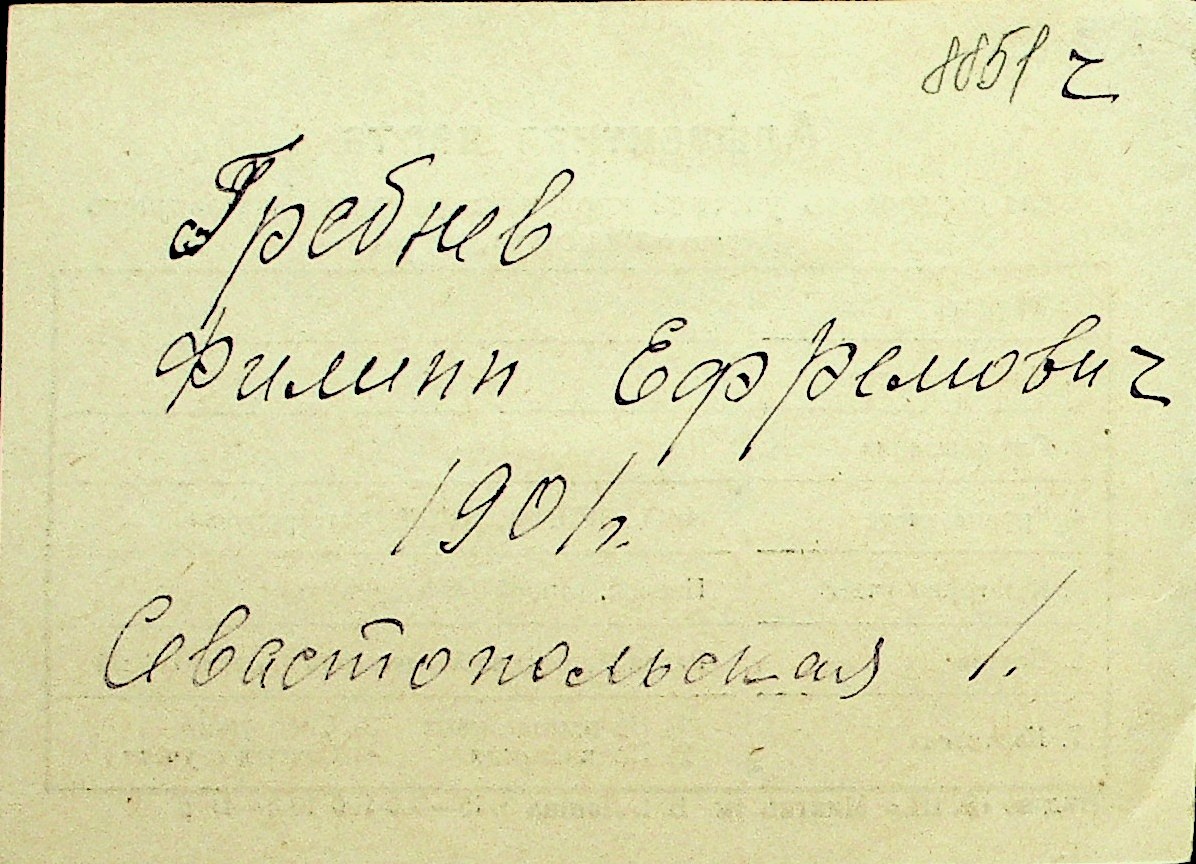 8851 ч
Гребнев
Филипп Ефремович
1901г.
Севастопольская 1.